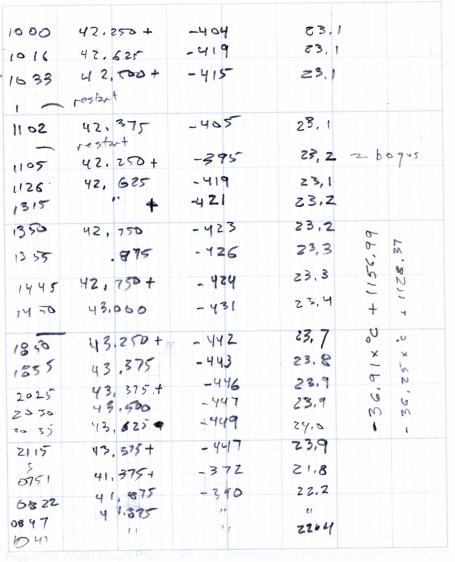 1000 42.250+ -404 23.1
1016 42.625 -419 23.1
1033 42.500+ -415 23.1
restart
1102 42.375 -405 23.1
restart
1105 42.250+ -395 23.2 bogus
1126 42.625 -419 23.1
1315 " + -421 23.2
1350 42.750 -423 23.2
1355 .875 -426 23.3
1445 42.750+ -424 23.3
1450 43.000 -431 23.4
1850 43.250+ -442 23.7
1855 43.375 -443 23.8
2025 43.375+ -446 23.9
2030 43.500 -447 23.9
2035 43.625 -449 24.0
2115 43.575+ -447 23.9
0751 41.375+ -372 21.8
0822 41.875 -390 22.2
0847 41.875 " "
" " 22.4
-36.91 x °C + 1156.99
-36.25 x °C + 1128.37